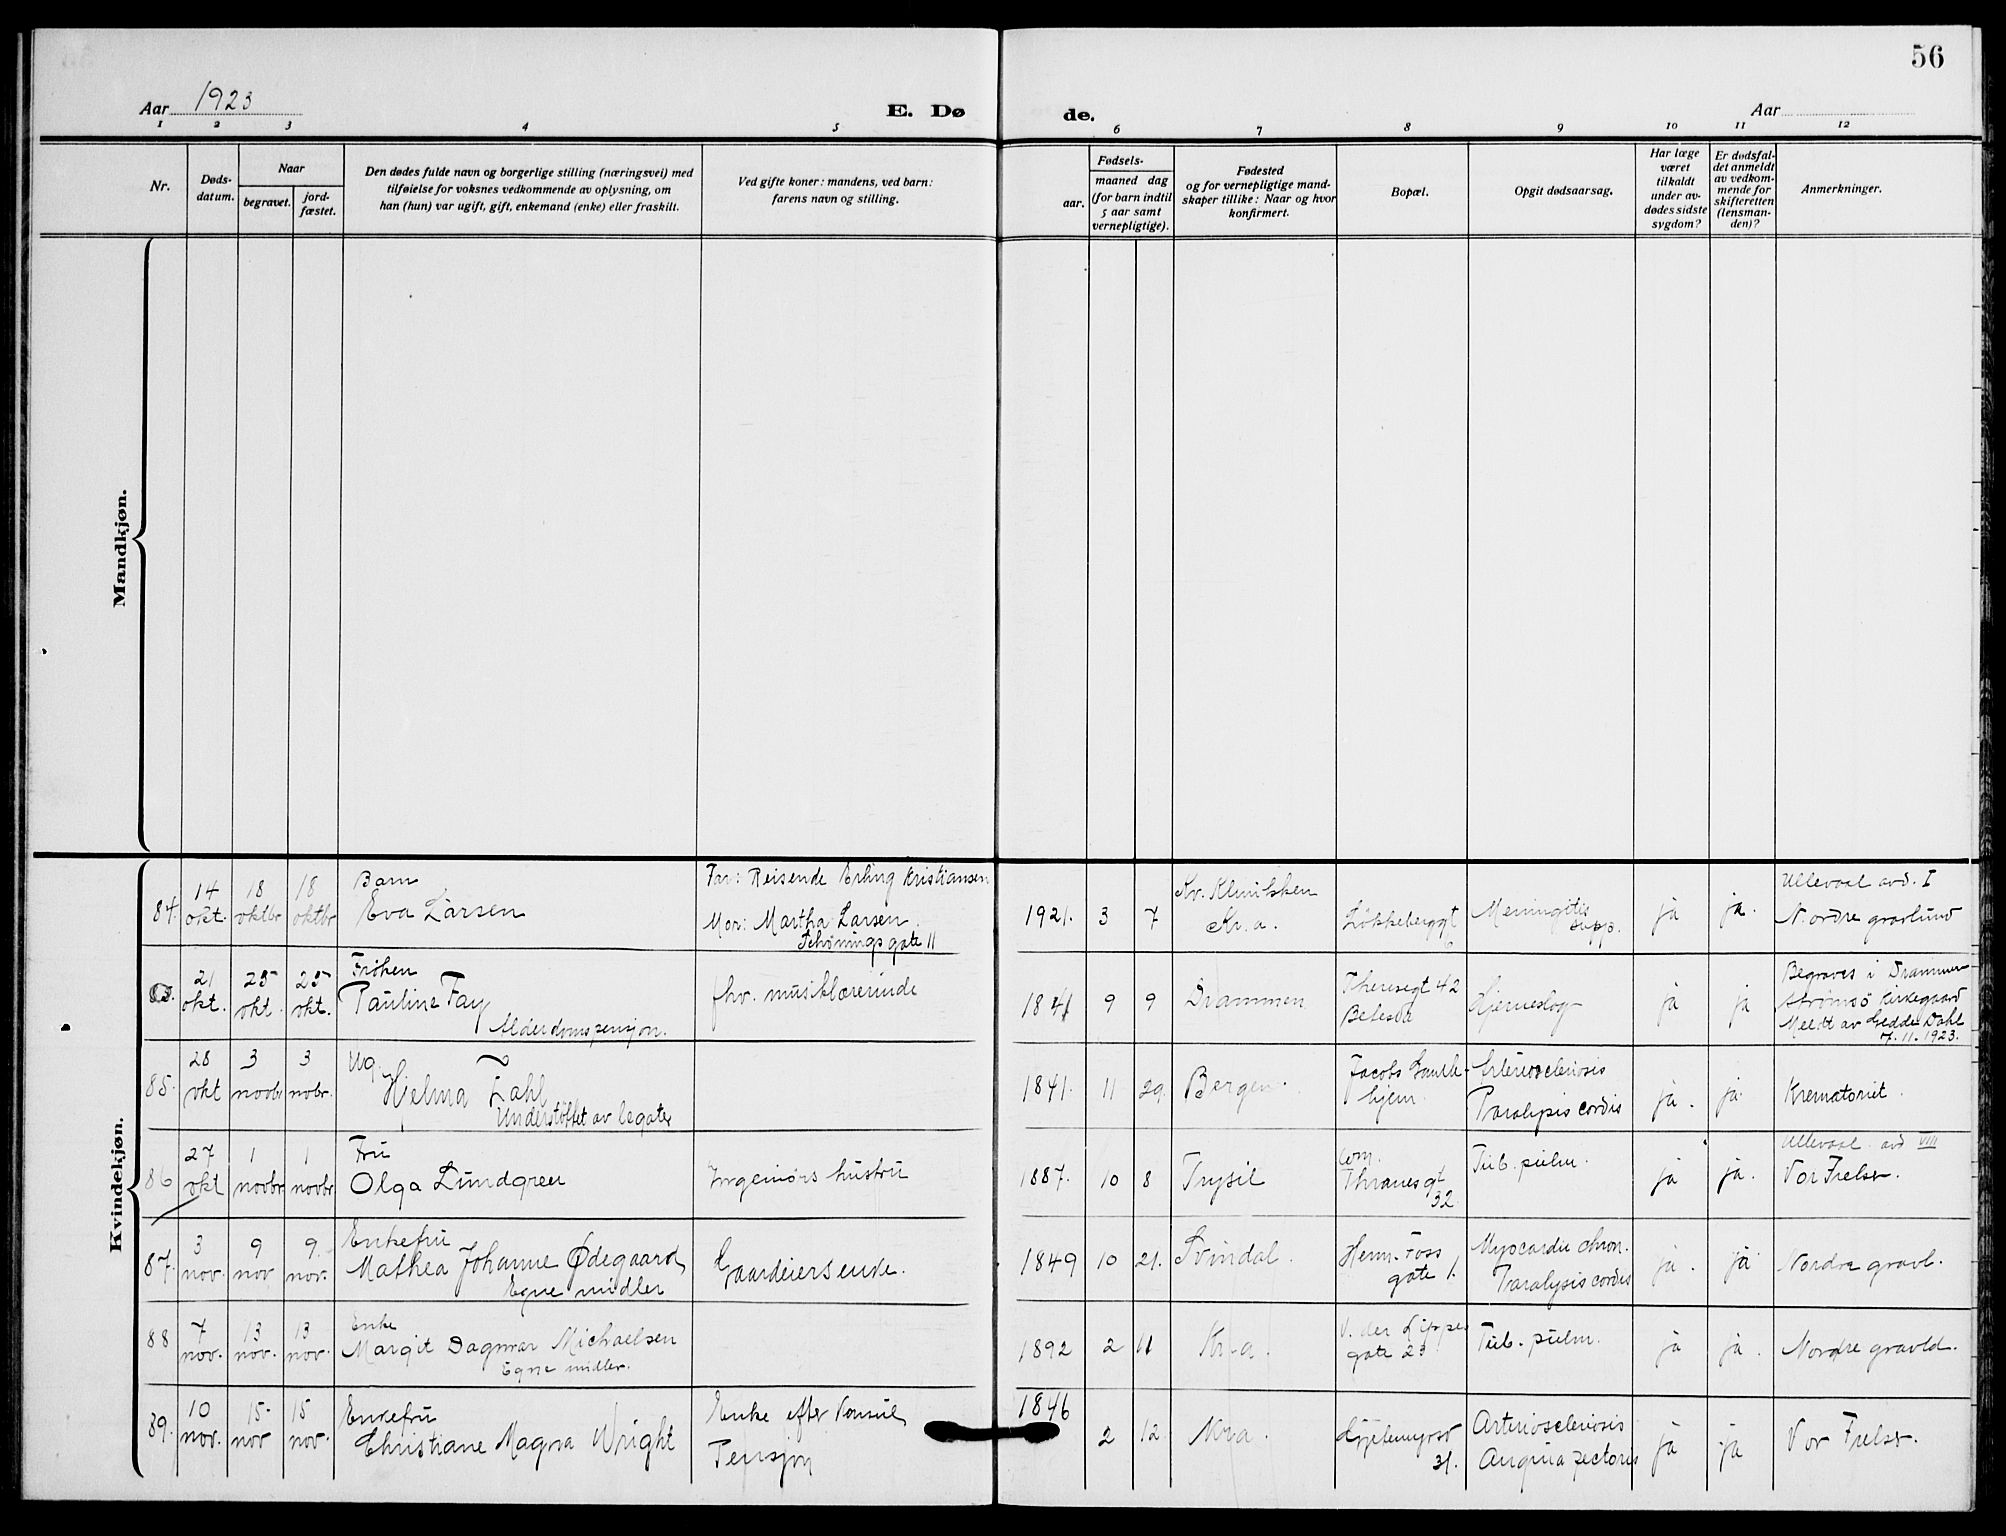 56
Aar 1923
E. Dø
de.
Aar
1 2 3 4 5 6 7 8 9 10 11 12
Nr.
Døds-
datum.
Naar
begravet.
jord-
fæstet.
Den dødes fulde navn og borgerlige stilling (næringsvei) med
tilføielse for voksnes vedkommende av oplysning, om
han (hun) var ugift, gift, enkemand (enke) eller fraskilt.
Ved gifte koner: mandens, ved barn:
farens navn og stilling.
Fødsels-
aar.
maaned dag
(for barn indtil
5 aar samt
vernepligtige).
Fødested
og for vernepligtige mand-
skaper tillike: Naar og hvor
konfirmert.
Bopæl.
Opgit dødsaarsag.
Har læge
været
tilkaldt
under av-
dødes sidste
sygdom?
Er dødsfal-
det anmeldt
av vedkom-
mende for
skifteretten
(lensman-
den)?
Anmerkninger.
Mandkjøn.
Kvindekjøn.
84.
14
okt.
18
oktbr
18
oktbr
Barn
Eva Larsen
Far: Reisende Erling Kristiansen
Mor: Martha Larsen
Schønings gate 11
1921. 3 7
Kv. Klinikken
Kr.a.
Løkkeberggt
Meningitis
supp.
ja
ja.
Ullevaal avd. I
Nordre gravlund
21
okt.
25
okt.
25
okt.
Frøken
Pauline Fay
Alderdomspensjon.
fhv. musiklærerinde
1841 9 9
Drammen
Theresegt 42
Betesda
Hjerneslag
ja
ja
Begraves i Drammen
Strømsø Kirkegaard
Meldt av Dahl
7.11.1923.
85.
28
okt
3
novbr
3
nobr.
Ug.
Hjelma Dahl
Understøttet av legater
1841. 11 29.
Bergen.
Jacobs
hjem.
Arterioscleriosis
Paralysis cordis
ja.
ja
Krematoriet.
86
27
okt
1
novbr
1
novbr
Fru
Olga Lundgreen
Ingeniørs hustru
1887. 10 8
Trysil
Thranes gt
32.
Tub. pulm.
ja
ja.
Ullevaal avd VIII
Vor Frelser.
87.
3
nov.
9
nov
9.
nov.
Enkefru
Mathea Johanne Ødegaard,
Egne midler
Gaardeiers enke.
1849 10 21.
Svindal.
Herm. Foss
gate 1.
Myocardie chron.
Paralysis cordis
ja.
ja
Nordre gravl.
88
7
nov.
13
nov.
13
nov.
Enke
Margit Dagmar Michaelsen
Egne midler.
1892 2 11
Kr.a.
V. der Lippes
gate 23
Tub. pulm.
ja
ja.
Nordre gravld.
89.
10
nov.
15
nov
15
nov.
Enkefru
Christiane Magna Wright
Enke efter Konsul,
Pensjon
1846
2 12.
Kr.a.
31.
Arterioscleriosis
Angina pectoris
ja
ja
Vor Frelser.